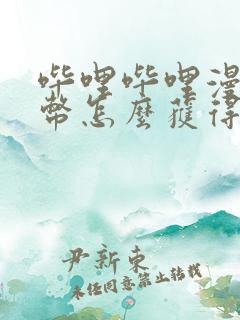 哔哩哔哩漫
幣怎麼獲得
尹新東
未任同意禁止转载